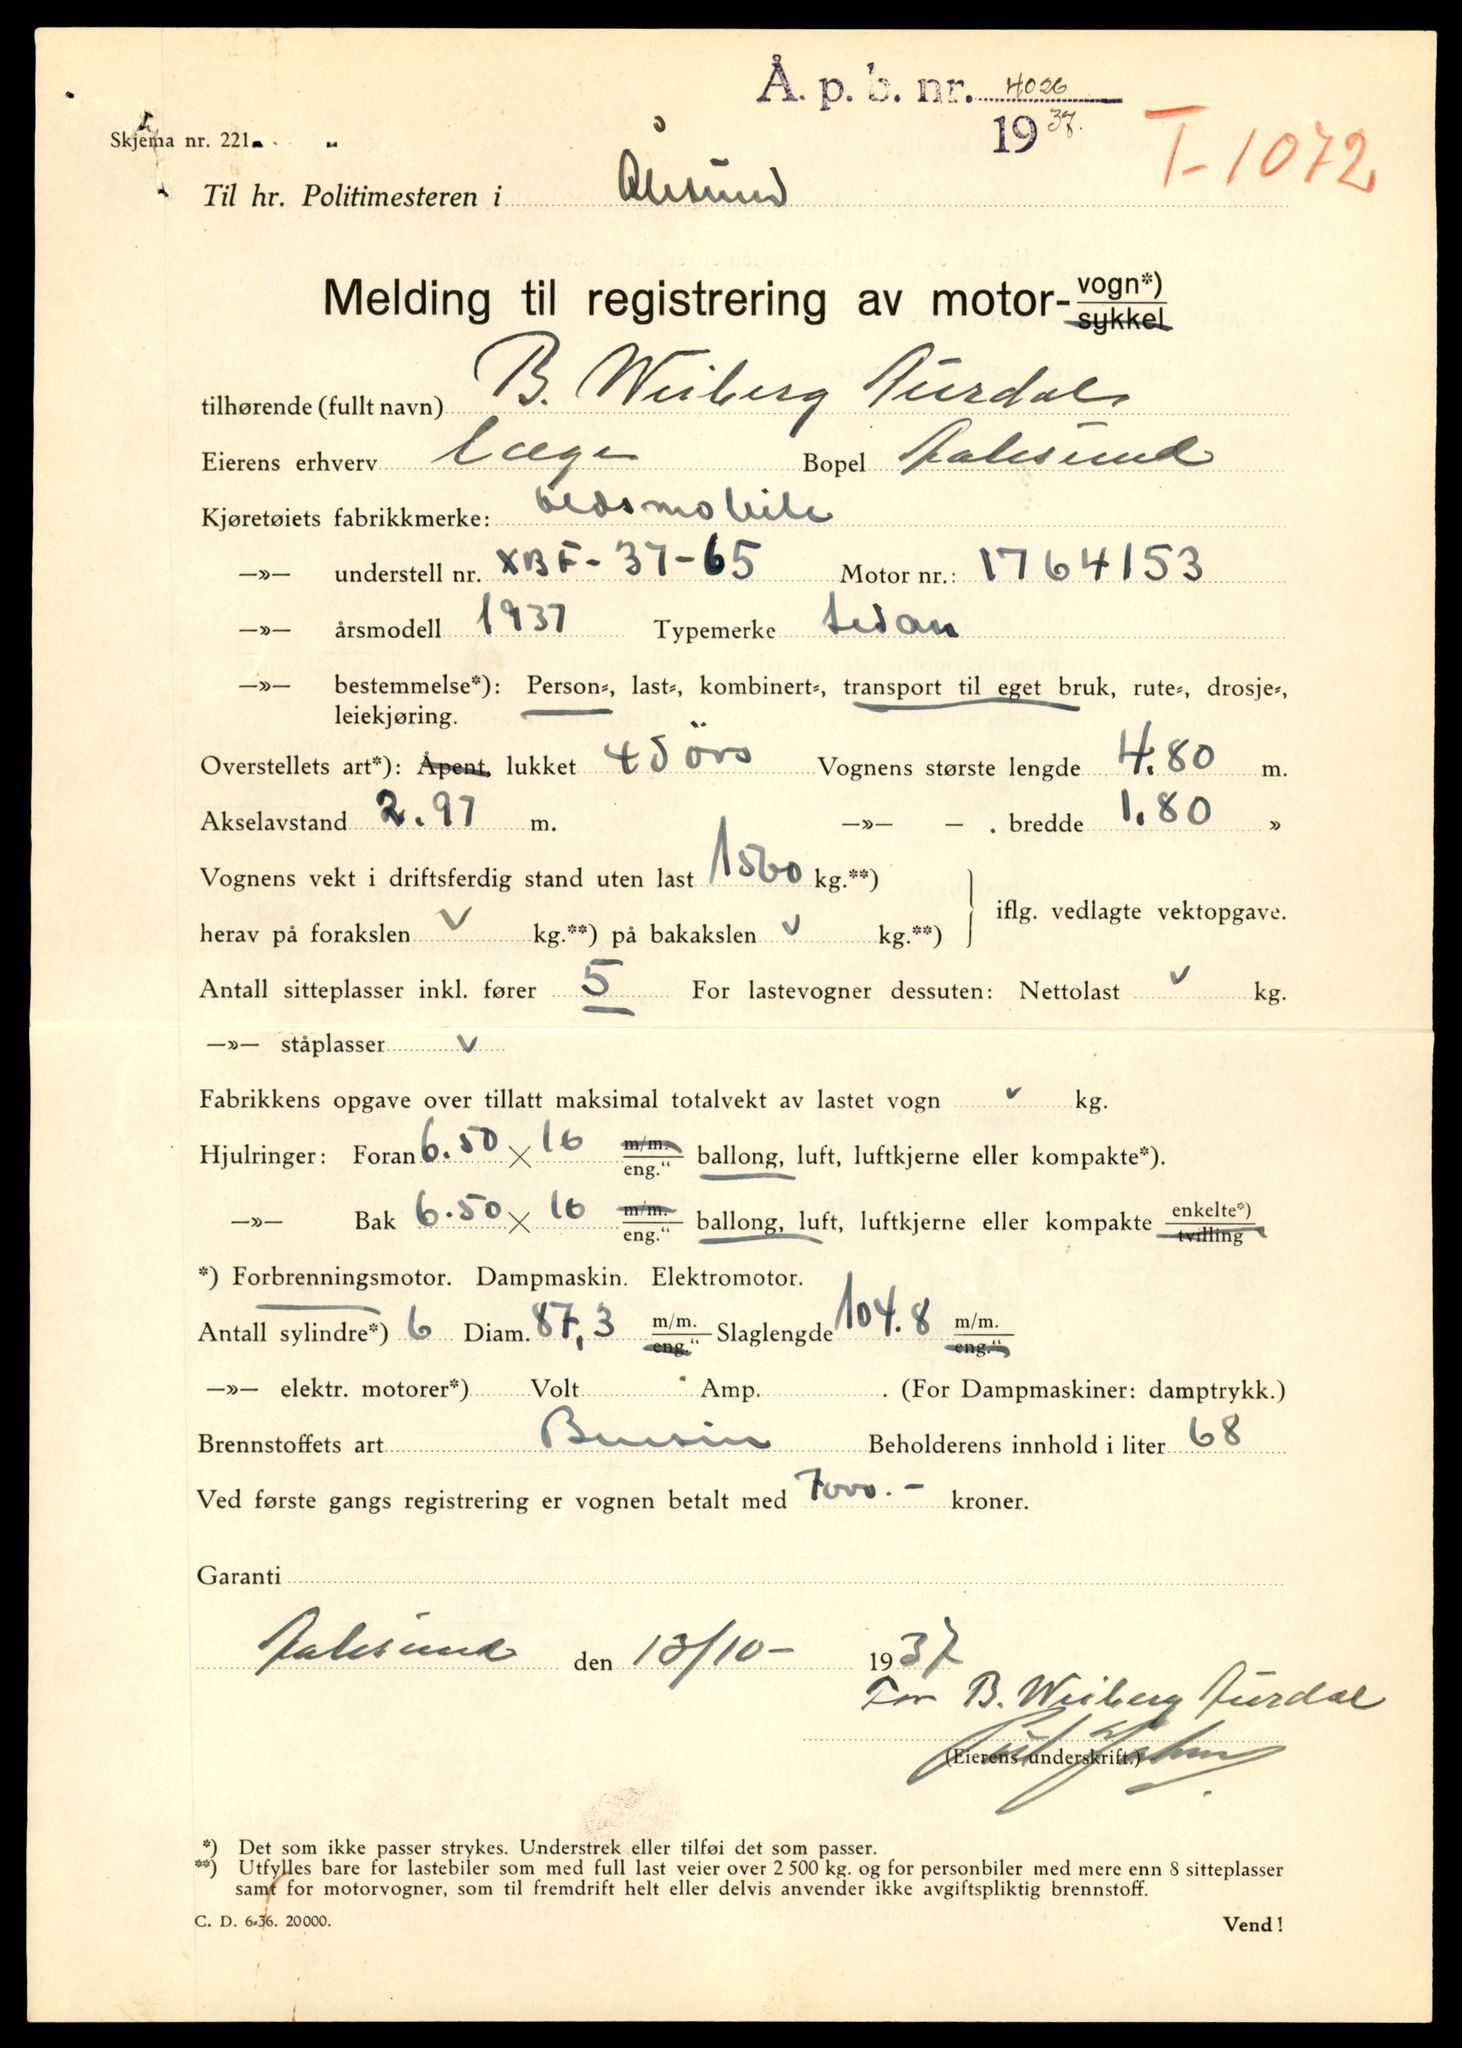 Å. p. b. nr. 4026
1937.
T-1072
Skjema nr. 221.
Til hr. Politimesteren i Ålesund
Melding til registrering av motor-vogn*)
sykkel
tilhørende (fullt navn) B. Weiberg Aurdal
Eierens erhverv Læge Bopel Aalesund
Kjøretøiets fabrikkmerke: Oldsmobile
—»— understell nr. XBF-37-65 Motor nr.: 1764153
—»— årsmodell 1937 Typemerke Sedan
—»— bestemmelse*): Person-, last-, kombinert-, transport til eget bruk, rute-, drosje-,
leiekjøring.
Overstellets art*): Åpent, lukket 4 dörs Vognens største lengde 4.80 m.
Akselavstand 2.97 m. —»— — . bredde 1.80 »
Vognens vekt i driftsferdig stand uten last 1560 kg.**)
herav på forakslen v kg.**) på bakakslen v kg.**)
iflg. vedlagte vektopgave.
Antall sitteplasser inkl. fører 5 For lastevogner dessuten: Nettolast v kg.
—»— ståplasser v
Fabrikkens opgave over tillatt maksimal totalvekt av lastet vogn v kg.
Hjulringer: Foran 6.50 × 16 m/m. eng." ballong, luft, luftkjerne eller kompakte*).
—»— Bak 6.50 × 16 m/m. eng." ballong, luft, luftkjerne eller kompakte enkelte*) tvilling
*) Forbrenningsmotor. Dampmaskin. Elektromotor.
Antall sylindre*) 6 Diam. 87,3 m/m. eng." Slaglengde 104.8 m/m. eng."
—»— elektr. motorer*) Volt Amp. . (For Dampmaskiner: damptrykk.)
Brennstoffets art Bensin Beholderens innhold i liter 68
Ved første gangs registrering er vognen betalt med 7000.- kroner.
Garanti
Aalesund den 13/10- 1937
For B. Weiberg Aurdal
(Eierens underskrift.)
*) Det som ikke passer strykes. Understrek eller tilføi det som passer.
**) Utfylles bare for lastebiler som med full last veier over 2 500 kg. og for personbiler med mere enn 8 sitteplasser
samt for motorvogner, som til fremdrift helt eller delvis anvender ikke avgiftspliktig brennstoff.
C. D. 6-36. 20000.
Vend!